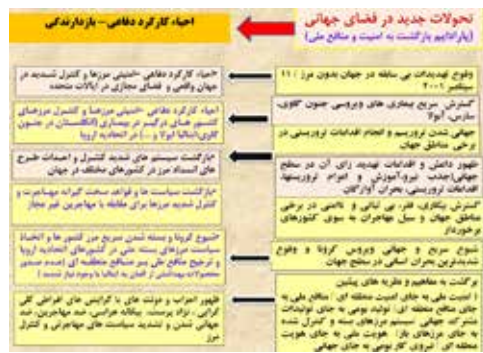 تحولات جدید در فضای جهانی
(پارادایم بازگشت به امنیت و منافع ملی)
احیاء کارکرد دفاعی – بازدارندگی
وقوع تهدیدات بی سابقه در جهان بدون مرز / ۱۱
سپتامبر ۲۰۰۱
گسترش سریع بیماری های ویروسی جنون گاوی،
سارس، ابولا
جهانی شدن تروریسم و انجام اقدامات تروریستی در
برخی مناطق جهان
ظهور داعش و اقدامات تهدید زای آن در سطح
جهانی(جذب نیرو،آموزش و اعزام تروریستها،
اقدامات تروریستی، بحران آوارگان
گسترش بیکاری، فقر، بی ثباتی و ناامنی در برخی
مناطق جهان و سیل مهاجران به سوی کشورهای
برخوردار
شیوع سریع و جهانی ویروس کرونا و وقوع
شدیدترین بحران انسانی در سطح جهان
برگشت به مفاهیم و نظریه های پیشین
( امنیت ملی به جای امنیت منطقه ای / منافع ملی به
جای منافع منطقه ای/ تولید بومی به جای تولیدات
مشترک جهانی/ سیستم مرزهای بسته و کنترل شده
به جای مرزهای باز/ هویت ملی به جای هویت
منطقه ای / نیروی کار بومی به جای جهانی
*احیاء کارکرد دفاعی -امنیتی مرزها و کنترل شدید در
جهان واقعی و فضای مجازی در ایالات متحده
احیاء کارکرد دفاعی -امنیتی مرزها و کنترل مرزهای
کشور های درگیر در بیماری (انگلستان در جنون
گاوی/ایتالیا ابولا و ...) در اتحادیه اروپا
*بازگشت سیستم های شدید کنترل و احداث طرح
های انسداد مرز در کشورهای مختلف در جهان
*بازگشت سیاست ها و قواعد سخت گیرانه مهاجرت و
کنترل شدید مرزها برای مقابله با مهاجرین غیر مجاز
*شیوع کرونا و بسته شدن سریع مرز کشورها و اتخاذ
سیاست مرزهای بسته ملی در کشورهای اتحادیه اروپا
و ترجیح منافع ملی بر منافع منطقه ای (عدم صدور
محصولات بهداشتی از آلمان به ایتالیا با وجود نیاز شدید)
ظهور احزاب و دولت های با گرایش های افراطی ملی
گرایی ، نژاد پرست، بیگانه هراسی، ضد مهاجرین، ضد
جهانی شدن و تشدید سیاست های مهاجرتی و کنترل
مرز